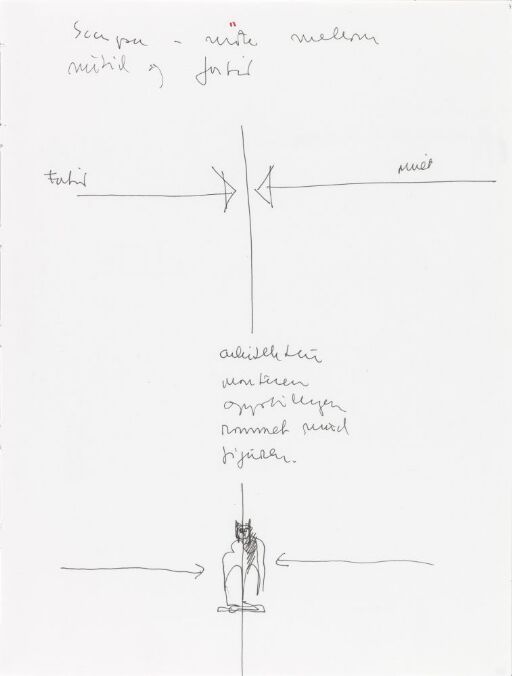 Scarpa - möte mellom
nåtid og fortid
Fortid
nutid
arkitekten
monterer
oppstillingen
rommet med
figuren.